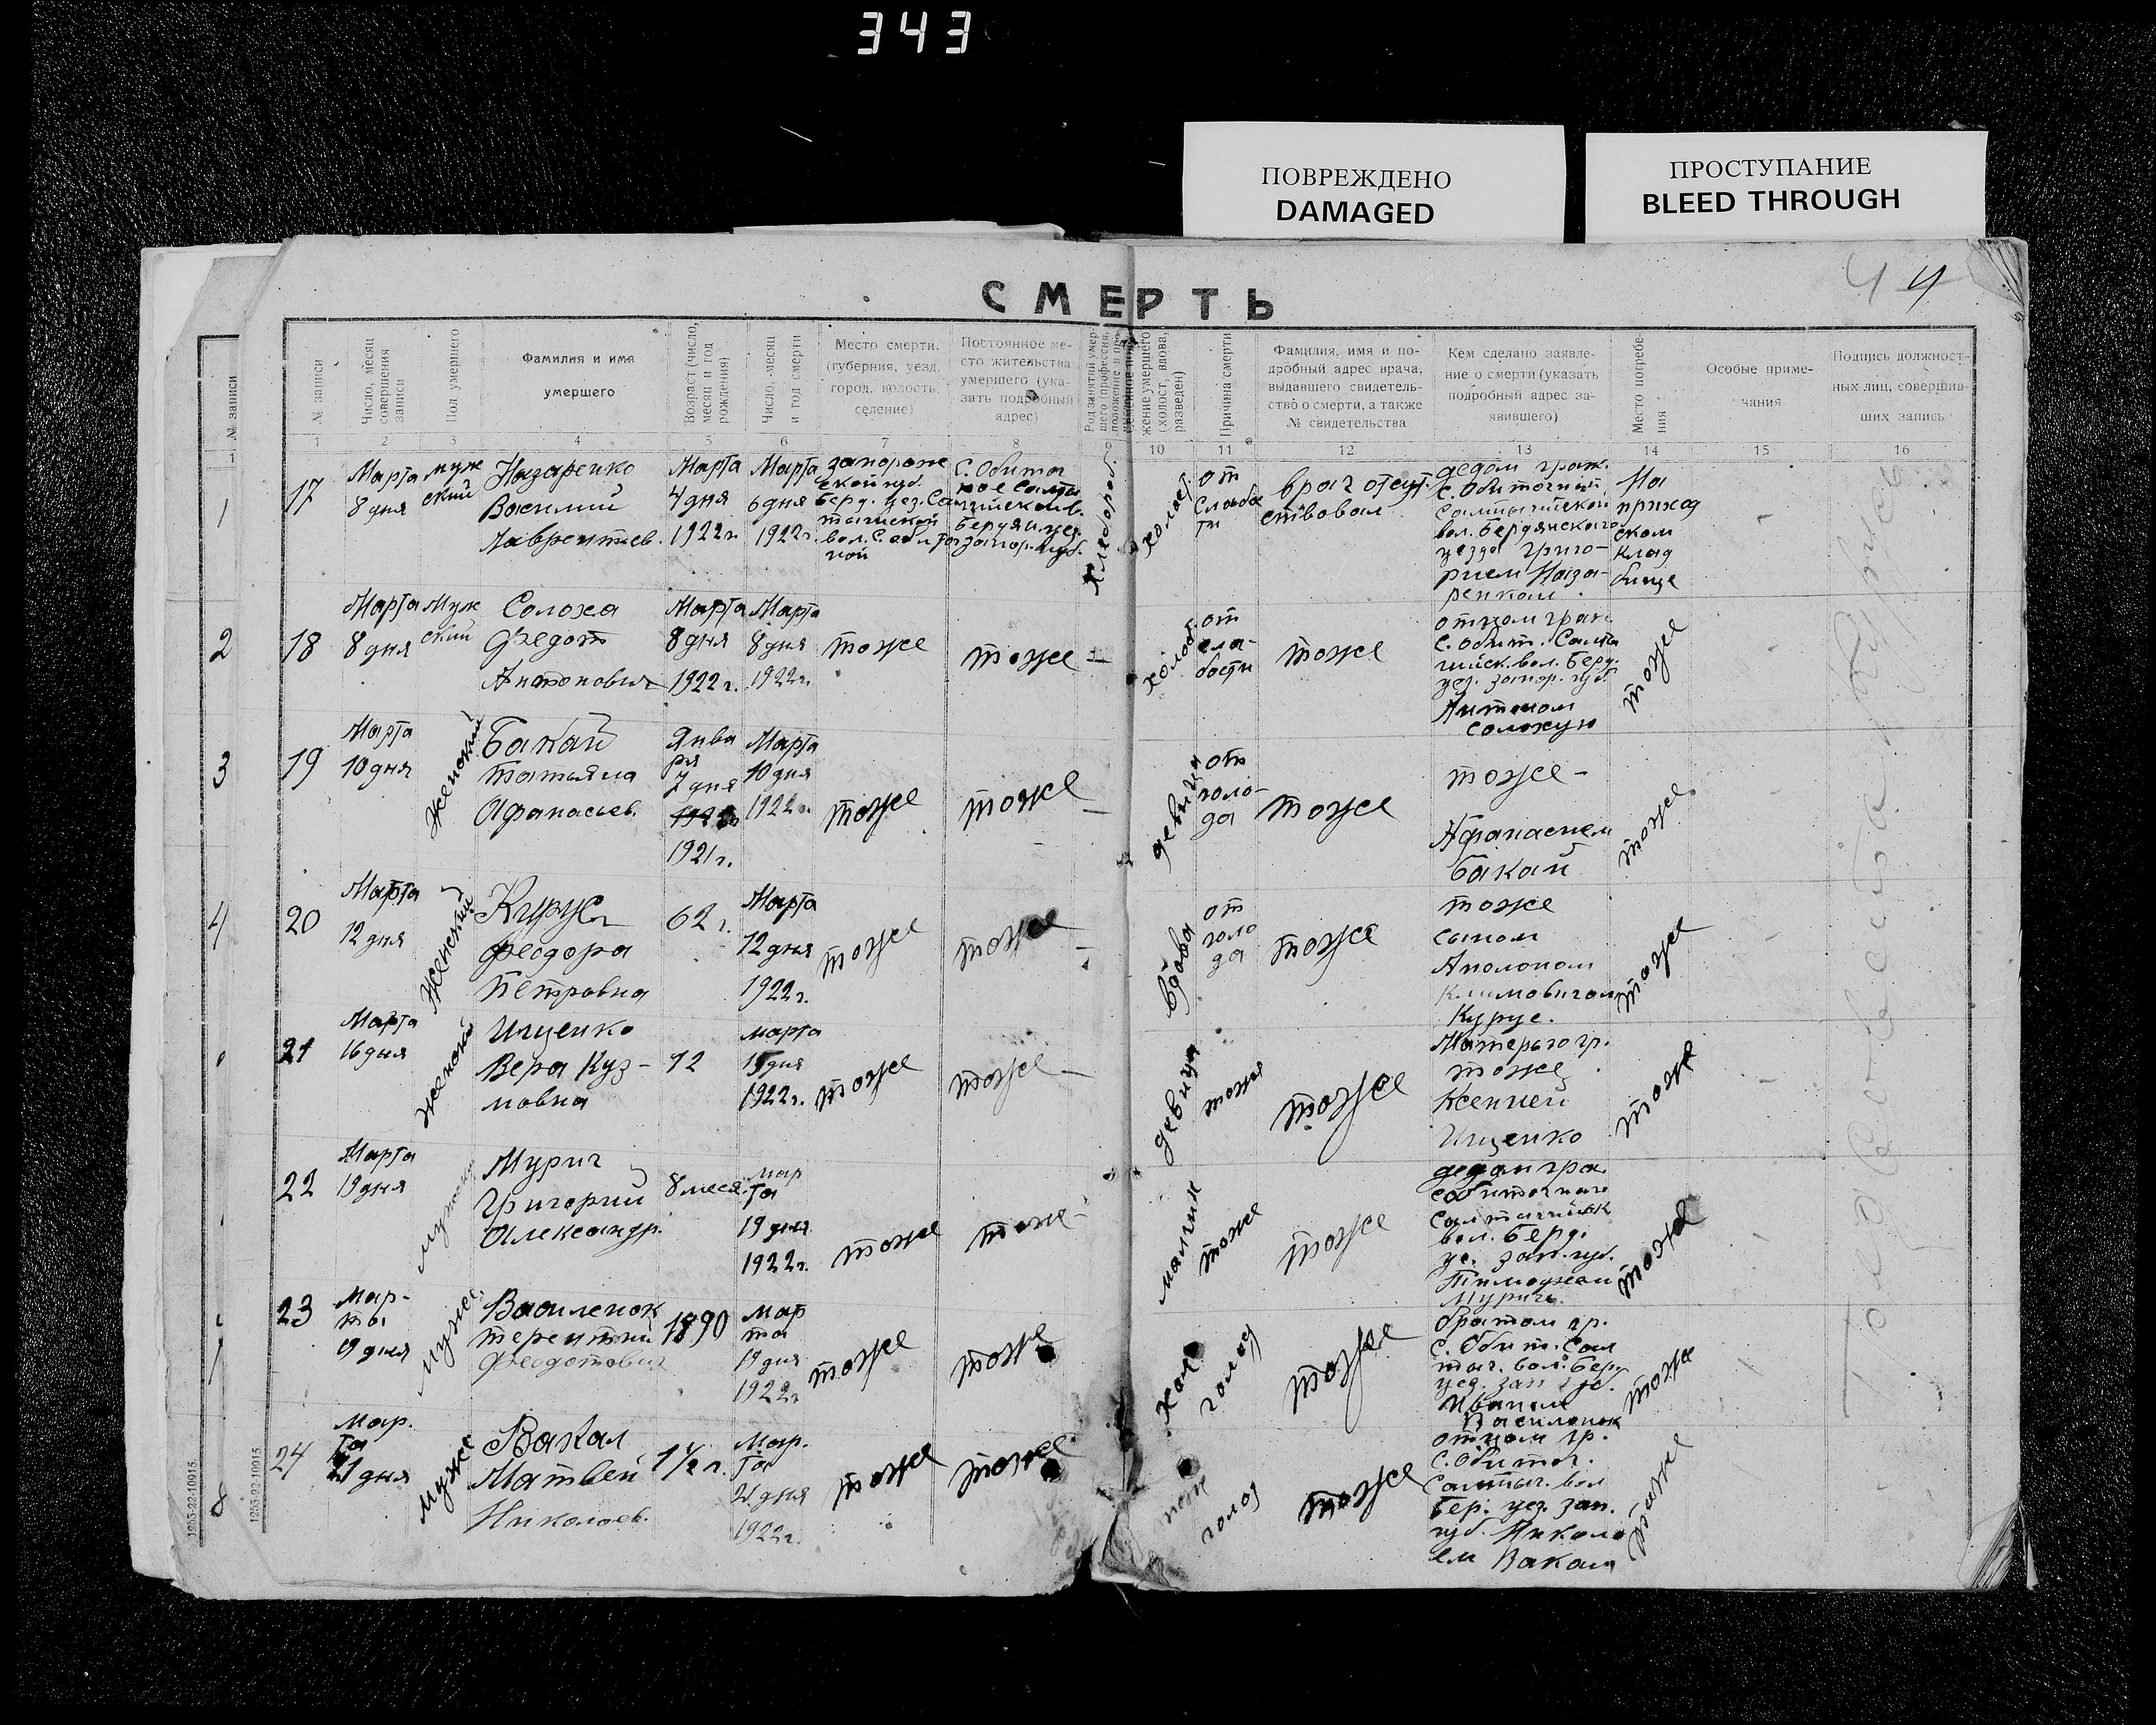 343
ПОВРЕЖДЕНО
DAMAGED
ПРОСТУПАНИЕ
BLEED THROUGH
44
СМЕРТЬ
№ записи
№ записи
Число, месяц совершения записи
Пол умершего
Фамилия и имя
умершего
Возраст (число, месяц и год рождения)
Число, месяц и год смерти
Место смерти.
(губерния, уезд,
город, волость,
селение)
Постоянное ме-
сто жительства
умершего (ука-
зать подробный
адрес)
Род занятий умер-
шего (профессия,
жение умершего
(холост, вдова,
разведен)
Причина смерти
Фамилия, имя и по-
дробный адрес врача,
выдавшего свидетель-
ство о смерти, а также
№ свидетельства
Кем сделано заявле-
ние о смерти (указать
подробный адрес за-
явившего)
Место погребе-
ния
Особые приме-
чания
Подпись должност-
ных лиц, совершив-
ших запись
1
1 2 3 4 5 6 7 8 9 10 11 12 13 14 15 16
1
17
Марта
8 дня
муж
ский
Назаренко
Василий
Лаврентиев.
Марта
4 дня
1922 г.
Марта
6 дня
1922 г.
запорож
ской губ.
берд. уез. Сал
тыгиской
вол. С. обиточ
ной
С. Обиточ
ное
бердян. уез.
запор. губ.
хлебороб.
холост.
от
слабос
ти
врач отсут
ствовал
дедом граж.
С. Обиточный
вол. Бердянского
уезда Григо-
рием Наза-
ренком.
На
приход
ском
клад
бище
2
18
Марта
8 дня
Муж
ский
Солоха
Федот
Антонович
Марта
8 дня
1922 г.
Марта
8 дня
1922 г.
тоже
тоже
холос.
от
сла-
бости
тоже
отцом граж
С. Обит. Салты
гийск. вол. Берд.
уез. запор. губ.
Антоном
Солохую
тоже
3
19
Марта
10 дня
Женский
Бакай
Татьяна
Афанасьев.
Янва
ря
7 дня
1921 г.
Марта
10 дня
1922 г.
тоже
тоже
девица
от
голо-
да
тоже
тоже
Афанасием
Бакай
тоже
4
20
Марта
12 дня
Женский
Курус
Феодора
Петровна
62 г.
Марта
12 дня
1922 г.
тоже
тоже
вдова
от
голо
да
тоже
тоже
сыном
Аполоном
Климовичом
Курус.
тоже
21
Марта
16 дня
Женский
Ищенко
Вера Куз-
мовна
12
марта
15 дня
1922 г.
тоже
тоже
девица
тоже
тоже
Матерью гр.
тоже
Ксенией
Ищенко
тоже
22
Марта
19 дня
Мурич
Григорий
Александр.
8 меся.
мар
та
19 дня
1922 г.
тоже
тоже
малчик
тоже
тоже
дедом гра.
вол. Берд.
уе. зап. губ.
Тимофеем
Мурич.
тоже
23
Мар-
ты
19 дня
мужс.
Василенок
Терентий
Федотович
1890
мар
та
19 дня
1922 г
тоже
тоже
холо
голод
тоже
братом гр.
С. Обит. Сал
тыг. вол. Бер.
уез. зап губ.
Иваном
Василенок
тоже
8
24
Мар.
та
21 дня
мужс
Вакал
Матвей
Николаев.
1 1/2 г.
Мар.
та
21 дня
1922 г.
тоже
тоже
тоже
голод
тоже
отцом гр.
С. Обиточ.
Салтыг. вол
Бер. уез. зап.
губ. Никола
ем Вакала
тоже
1253-22-10915
1253-22-10915